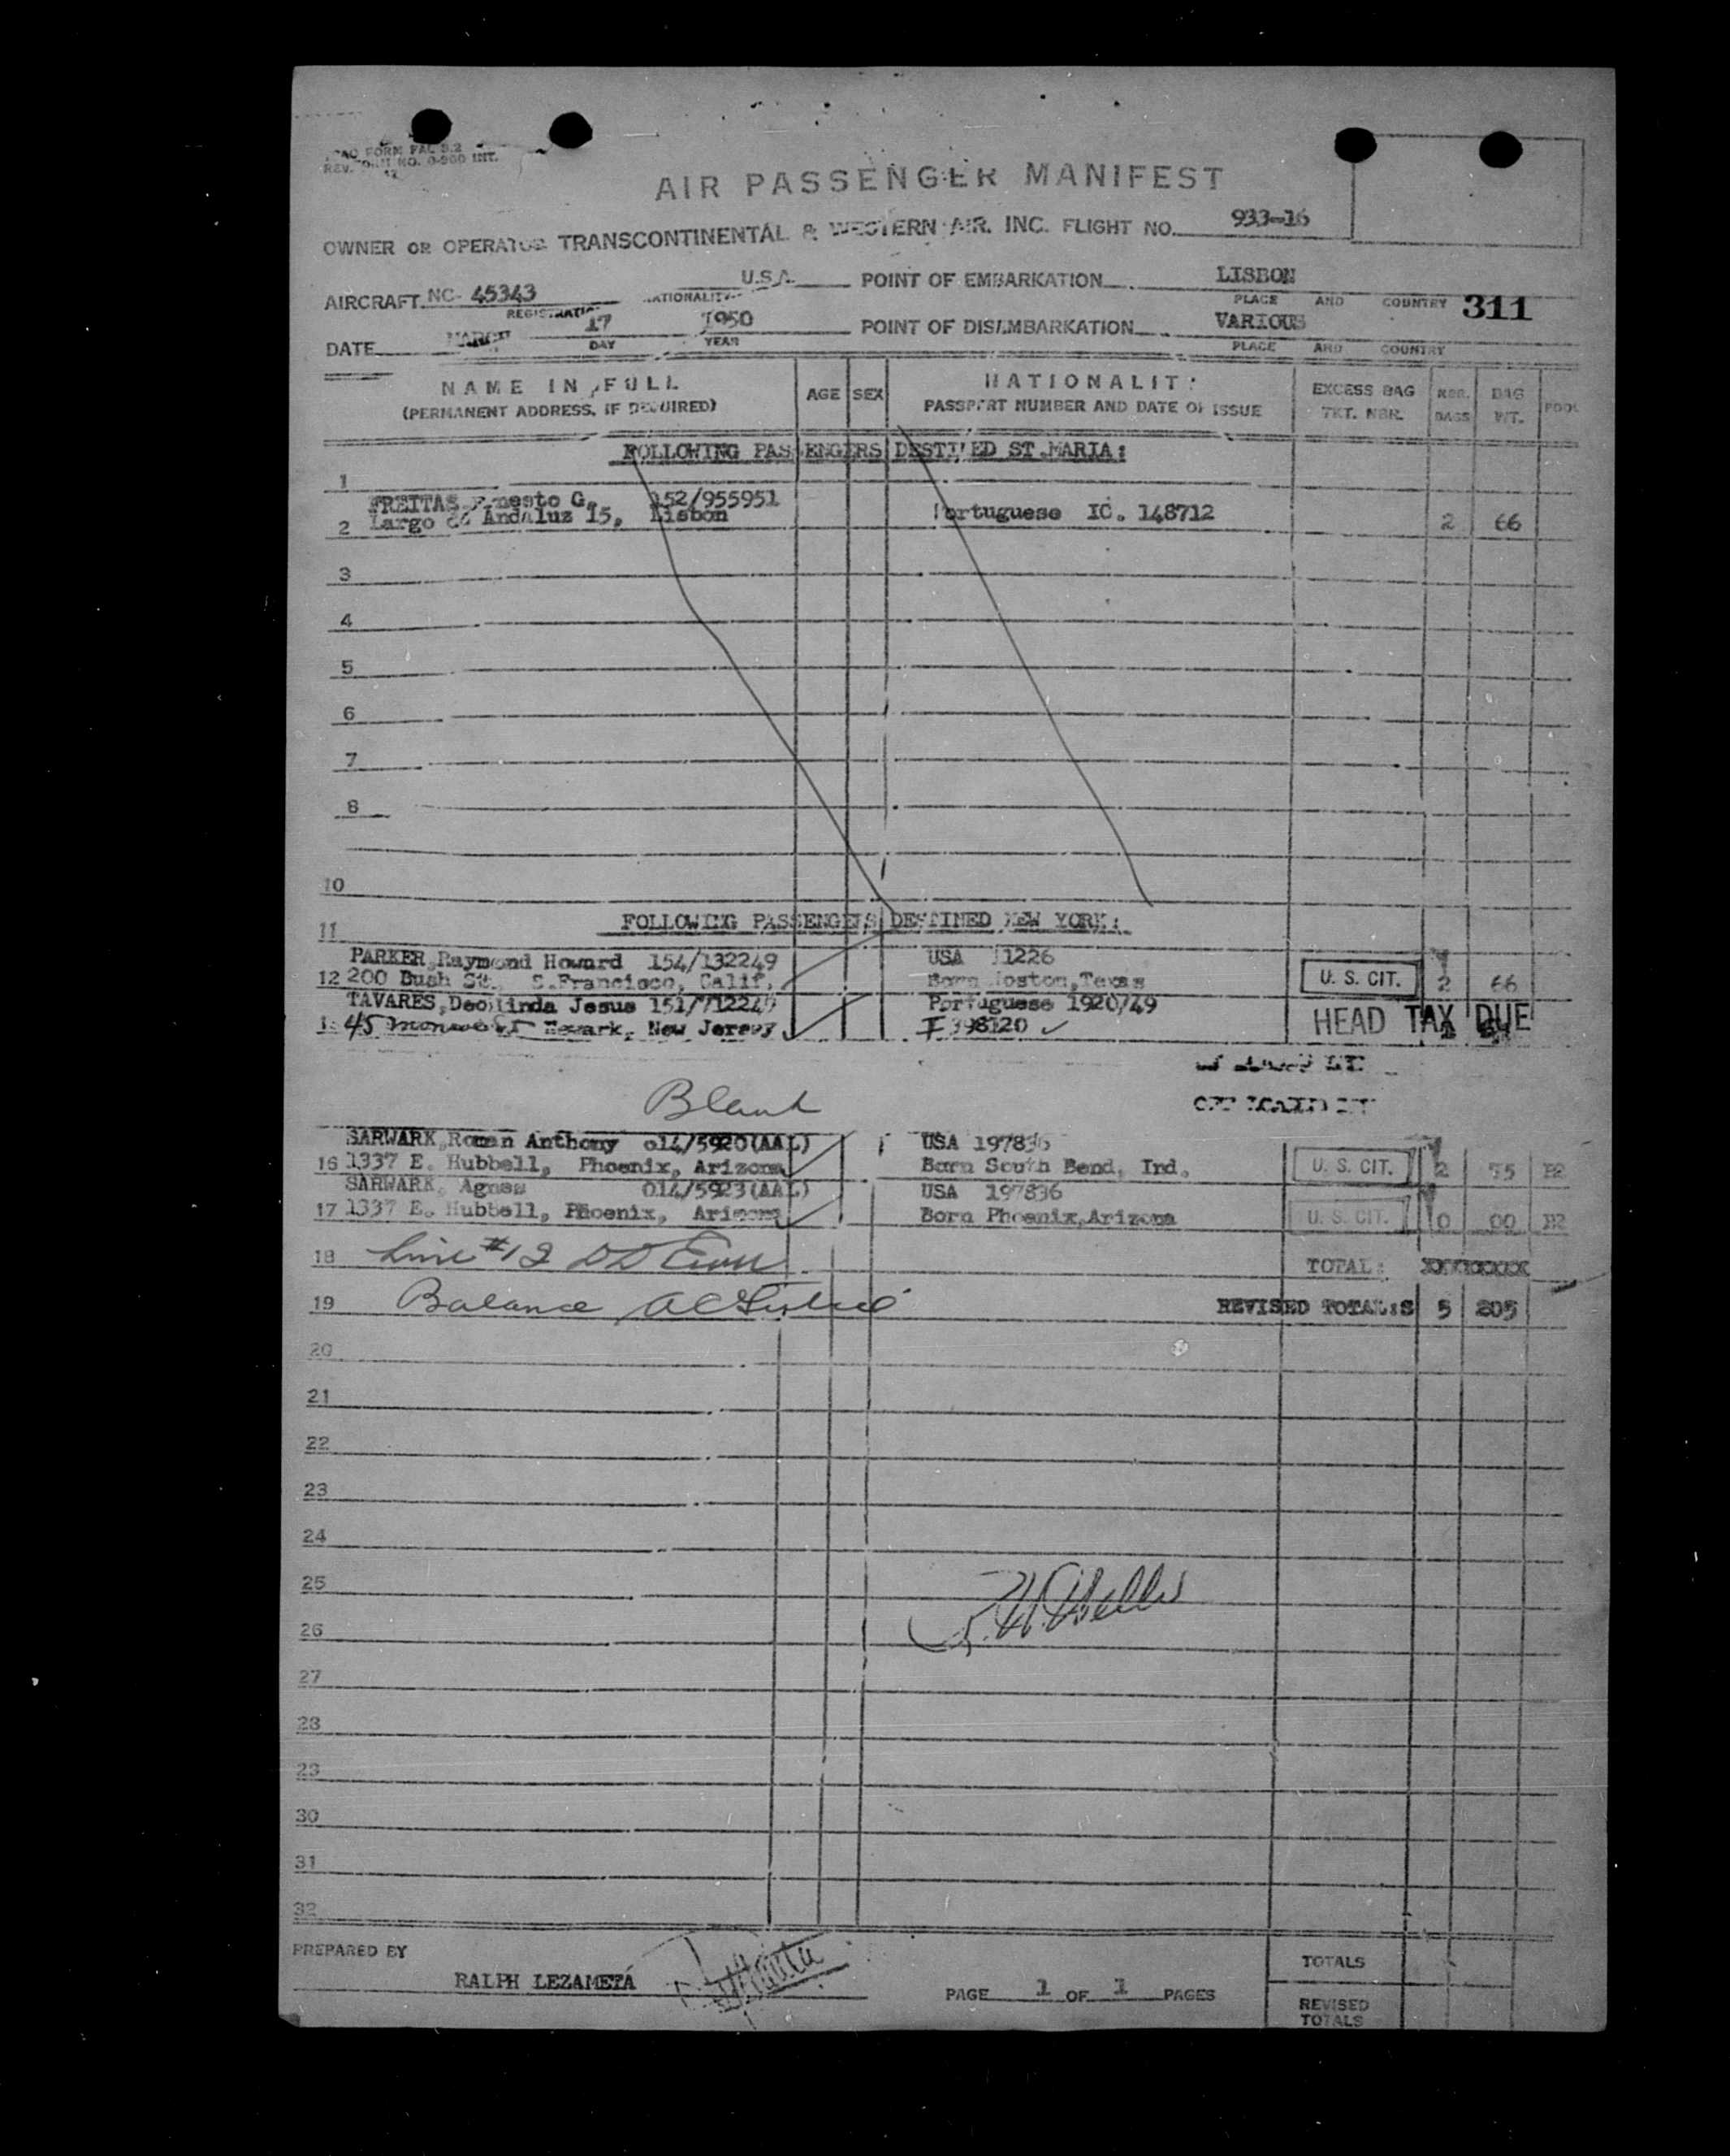 FORM FAL 3.2
REV. NO. 0-900 INT.
AIR PASSENGER MANIFEST
OWNER OR OPERATOR TRANSCONTINENTAL & WESTERN AIR. INC. FLIGHT NO. 933-16
AIRCRAFT NC- 45343 U.S.A. POINT OF EMBARKATION LISBON
REGISTRATION NATIONALITY PLACE AND COUNTRY 311
DATE MARCH 17 1950 POINT OF DISEMBARKATION VARIOUS
DAY YEAR PLACE AND COUNTRY
NAME IN FULL AGE SEX NATIONALITY EXCESS BAG NBR. BAG
(PERMANENT ADDRESS, IF REQUIRED) PASSPORT NUMBER AND DATE OF ISSUE TKT. NBR. BAGS WT. POOL
FOLLOWING PASSENGERS DESTINED ST.MARIA:
1
FREITAS Ernesto G. 152/955951
2 Largo de Andaluz 15, Lisbon Portuguese IC. 148712 2 66
3
4
5
6
7
8
10
FOLLOWING PASSENGERS DESTINED NEW YORK:
11
PARKER, Raymond Howard 154/132249 USA 1226
12 200 Bush St., S.Francisco, Calif. Born Texas U. S. CIT. 2 66
TAVARES, Deolinda Jesus Portuguese 1920/49
45 Newark, New Jersey I 398120 HEAD TAX DUE
Blank
SARWARK, Roman Anthony 014/5920(AAL) USA 197836
16 1337 E. Hubbell, Phoenix, Arizona Born South Bend, Ind. U. S. CIT. 2 B2
SARWARK, Agnes 014/5923(AAL) USA 197836
17 1337 E. Hubbell, Phoenix, Arizona Born Phoenix,Arizona U. S. CIT. 0 00 B2
18 Line #12 TOTAL: XXXXXXXX
19 Balance REVISED TOTAL:S 5 205
20
21
22
23
24
25
26
27
28
29
30
31
32
PREPARED BY TOTALS
RALPH LEZAMETA PAGE 1 OF 1 PAGES
REVISED
TOTALS